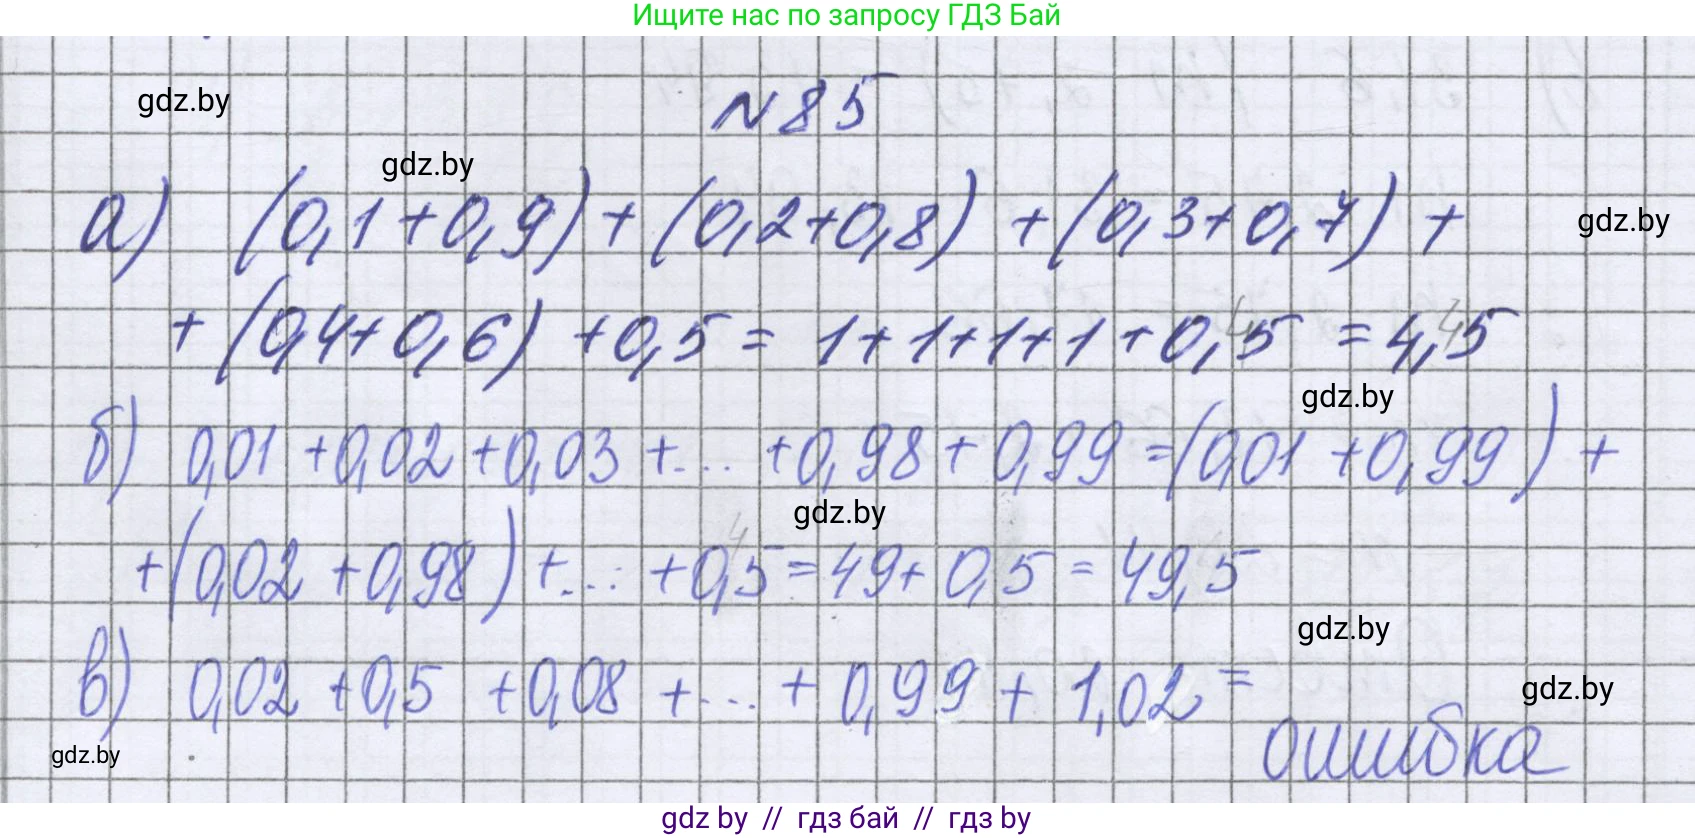 Ищите нас по запросу ГДЗ Бай
N 85
gdz.by
gdz.by
а) (0,1 + 0,9) + (0,2 + 0,8) + (0,3 + 0,7) +
gdz.by
+ (0,4 + 0,6) + 0,5 = 1 + 1 + 1 + 1 + 0,5 = 4,5
gdz.by
б) 0,01 + 0,02 + 0,03 + ... + 0,98 + 0,99 = (0,01 + 0,99) +
gdz.by
+ (0,02 + 0,98) + ... + 0,5 = 49 + 0,5 = 49,5
gdz.by
в) 0,02 + 0,5 + 0,08 + ... + 0,99 + 1,02 =
gdz.by
ошибка
gdz.by
gdz by // гдз бай // гдз by